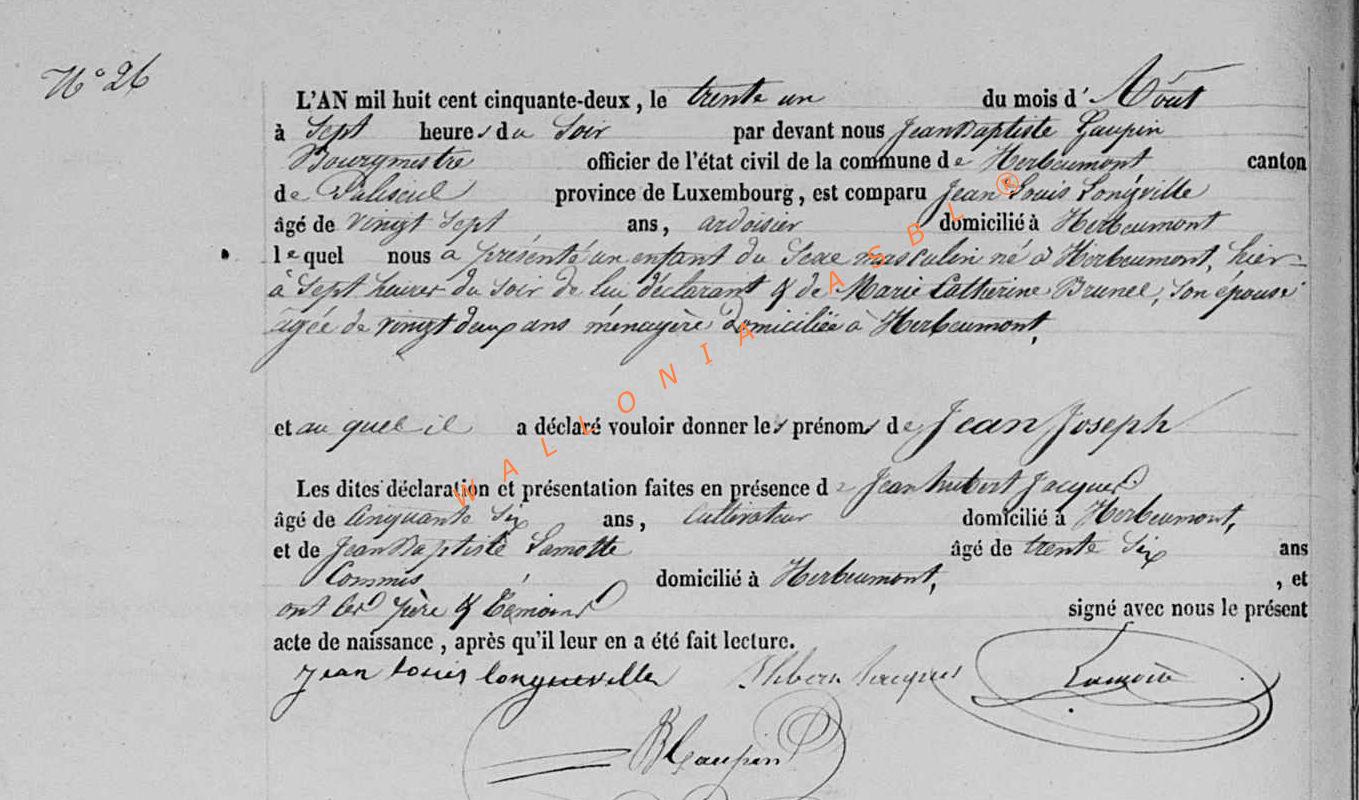 N° 26
L'AN mil huit cent cinquante-deux, le trente un du mois d' Août
à Sept heures du Soir par devant nous Jean Baptiste Gaupin
Bourgmestre officier de l'état civil de la commune de Herbeumont canton
de Paliseul province de Luxembourg, est comparu Jean Louis Longville
âgé de vingt Sept ans, ardoisier domicilié à Herbeumont
lequel nous a présenté un enfant du Sexe masculin né à Herbeumont, hier
à Sept heures du Soir de lui déclarant & de Marie Catherine Brunel, Son épouse
âgée de vingt deux ans ménagère domiciliée à Herbeumont,
et au quel il a déclaré vouloir donner les prénoms de Jean Joseph
Les dites déclaration et présentation faites en présence de Jean hubert Jacques
âgé de Cinquante Six ans, Cultivateur domicilié à Herbeumont,
et de Jean Baptiste Lamotte âgé de trente Six ans
Commis domicilié à Herbeumont, , et
ont les père & témoins signé avec nous le présent
acte de naissance, après qu'il leur en a été fait lecture.
jean Louis longueville Jacques
Gaupin
WALLONIA ASBL ®